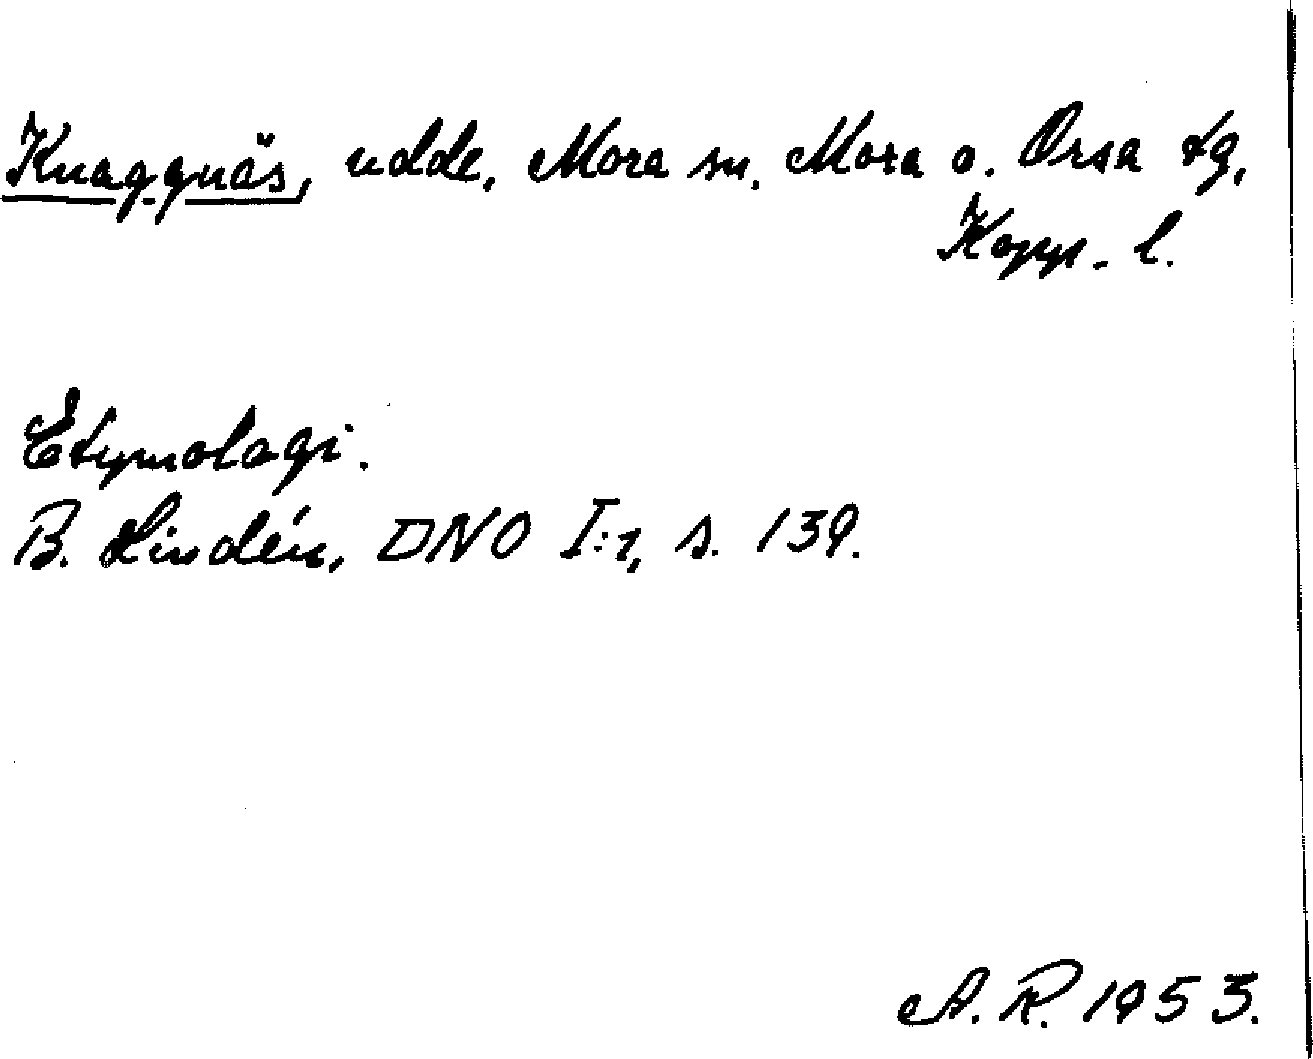 Knaggnäs, udde, Mora sn. Mora o. Orsa tg,
Kopp. l.
Etymologi.
B. Lindén, DNO I:1, s. 139.
A. R. 1953.